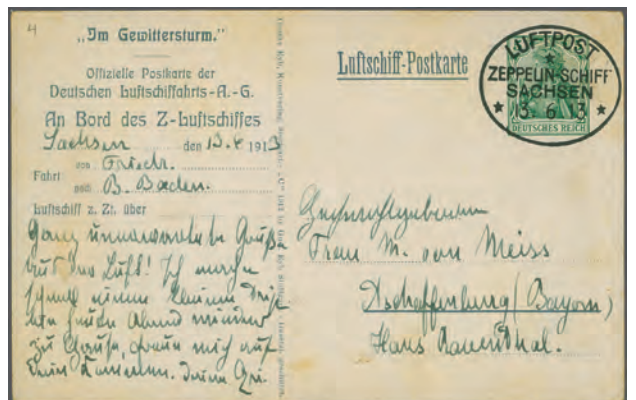 4
„Im Gewittersturm."
Offizielle Postkarte der
Deutschen Luftschiffahrts-A.-G.
An Bord des Z-Luftschiffes
Sachsen den 13.6 1913
Fahrt von Friedr.
nach B. Baden.
Luftschiff z. Zt. über
Ganz unerwartete Grüße
aus der Luft! Ich mache
schnell einen kleinen
bin heute Abend wieder
zu Hause, freue mich auf
Dein Kommen.
Luftschiff-Postkarte
LUFTPOST
ZEPPELIN-SCHIFF
SACHSEN
13. 6. 13
DEUTSCHES REICH
Hochwohlgeboren
Frau M. von Meiss
Aschaffenburg (Bayern)
Haus